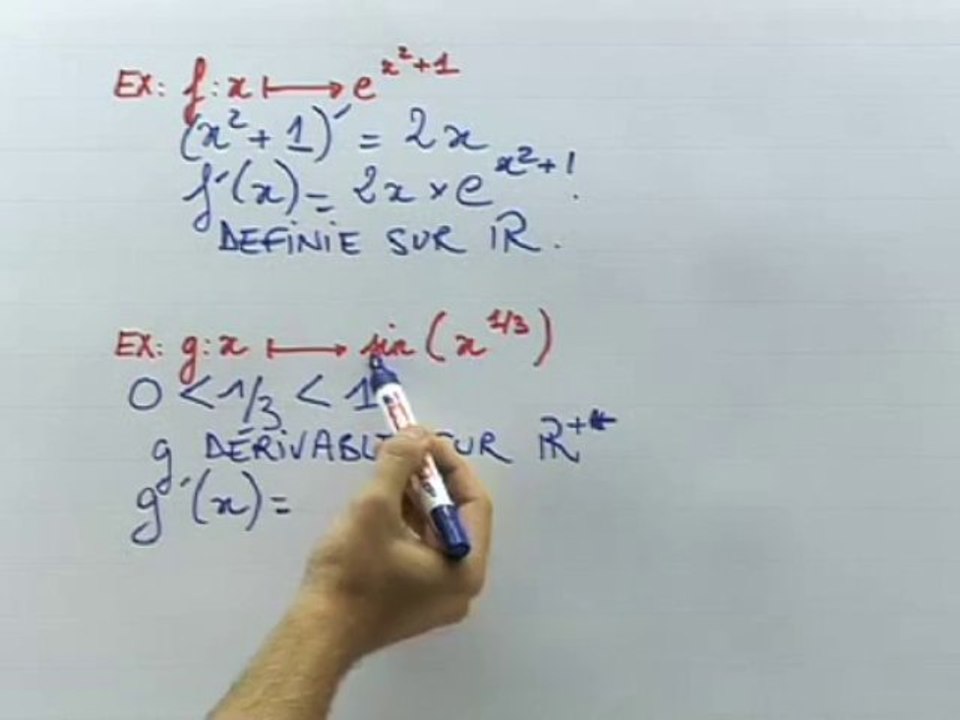 EX: f: x ⟼ e^{x²+1}
(x²+1)' = 2x
f'(x) = 2x × e^{x²+1}.
DEFINIE SUR ℝ.
EX: g: x ⟼ sin(x^{1/3})
0 < 1/3 < 1
g DÉRIVABLE SUR ℝ^{+*}
g'(x) =